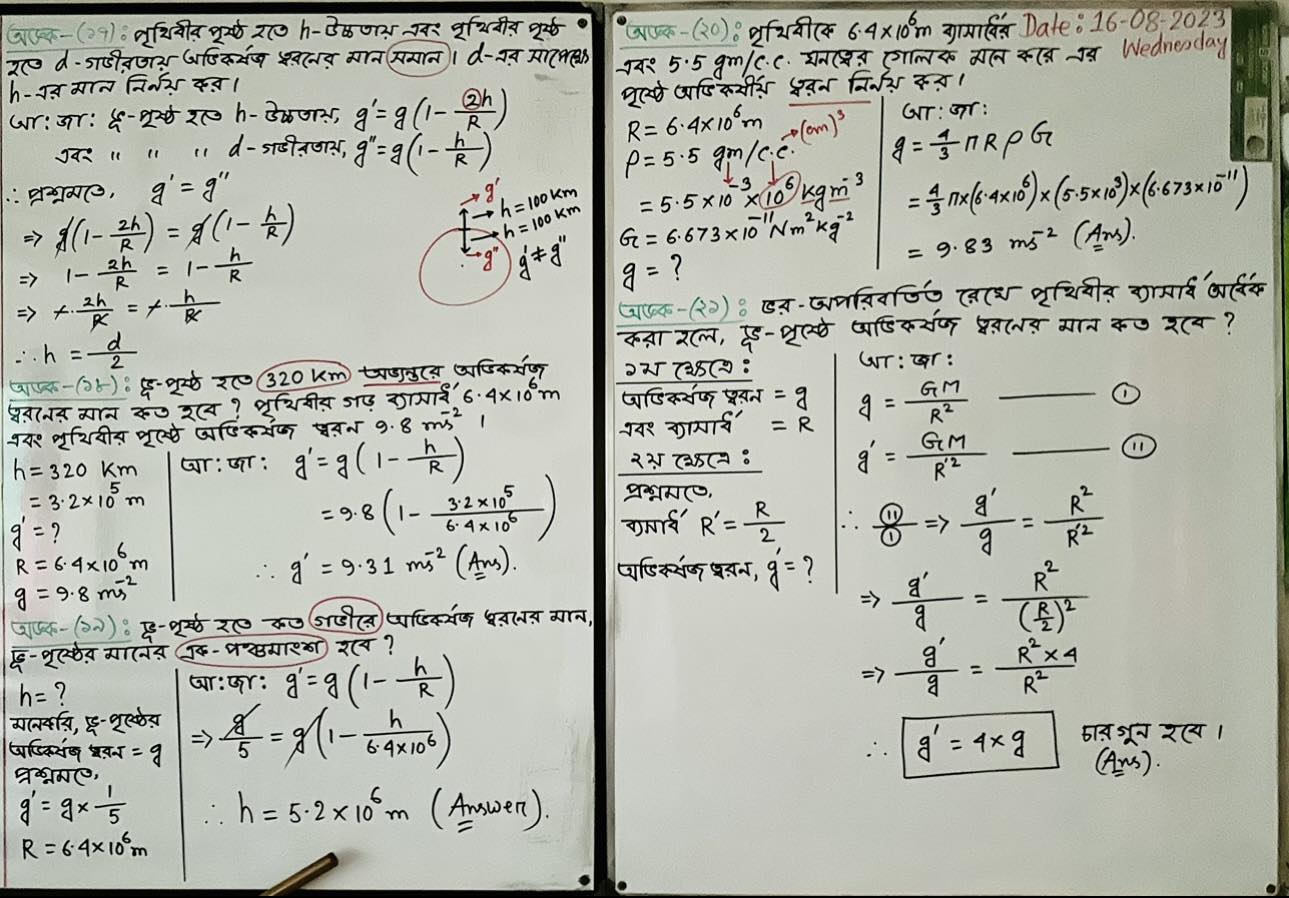 অংক-(১৭): পৃথিবীর পৃষ্ঠ হতে h-উচ্চতায় এবং পৃথিবীর পৃষ্ঠ
হতে d-গভীরতায় অভিকর্ষজ ত্বরনের মান সমান। d-এর সাপেক্ষে
h-এর মান নির্নয় কর।
আ:জা: ভূ-পৃষ্ঠ হতে h-উচ্চতায়, g' = g(1 - 2h/R)
এবং " " " d-গভীরতায়, g" = g(1 - h/R)
∴ প্রশ্নমতে, g' = g"
=> g(1 - 2h/R) = g(1 - h/R)
=> 1 - 2h/R = 1 - h/R
=> - 2h/R = - h/R
∴ h = d/2
g'
h = 100 Km
h = 100 Km
g"
g' ≠ g"
অংক-(১৮): ভূ-পৃষ্ঠ হতে 320 Km অভ্যন্তরে অভিকর্ষজ
ত্বরনের মান কত হবে? পৃথিবীর গড় ব্যাসার্ধ 6.4×10⁶m
এবং পৃথিবীর পৃষ্ঠে অভিকর্ষজ ত্বরন 9.8 ms⁻² ।
h = 320 Km
= 3.2×10⁵ m
g' = ?
R = 6.4×10⁶ m
g = 9.8 ms⁻²
আ:জা: g' = g(1 - h/R)
= 9.8(1 - 3.2×10⁵/6.4×10⁶)
∴ g' = 9.31 ms⁻² (Ans).
অংক-(১৯): ভূ-পৃষ্ঠ হতে কত গভীরে অভিকর্ষজ ত্বরনের মান,
ভূ-পৃষ্ঠের মানের এক-পঞ্চমাংশ হবে?
h = ?
মনেকরি, ভূ-পৃষ্ঠের
অভিকর্ষজ ত্বরন = g
প্রশ্নমতে,
g' = g × 1/5
R = 6.4×10⁶m
আ:জা: g' = g(1 - h/R)
=> g/5 = g(1 - h/6.4×10⁶)
∴ h = 5.2×10⁶ m (Answer).
Date: 16-08-2023
Wednesday
অংক-(২০): পৃথিবীকে 6.4×10⁶m ব্যাসার্ধের
এবং 5.5 gm/c.c. ঘনত্বের গোলক মনে করে এর
পৃষ্ঠে অভিকর্ষীয় ত্বরন নির্নয় কর।
R = 6.4×10⁶ m
→(cm)³
ρ = 5.5 gm/c.c.
= 5.5×10⁻³×10⁶ kgm⁻³
G = 6.673×10⁻¹¹ Nm²kg⁻²
g = ?
আ:জা:
g = 4/3 πRρG
= 4/3 π×(6.4×10⁶)×(5.5×10³)×(6.673×10⁻¹¹)
= 9.83 ms⁻² (Ans).
অংক-(২১): ভর-অপরিবর্তিত রেখে পৃথিবীর ব্যাসার্ধ অর্ধেক
করা হলে, ভূ-পৃষ্ঠে অভিকর্ষজ ত্বরনের মান কত হবে?
১ম ক্ষেত্রে:
অভিকর্ষজ ত্বরন = g
এবং ব্যাসার্ধ = R
২য় ক্ষেত্রে:
প্রশ্নমতে,
ব্যাসার্ধ R' = R/2
অভিকর্ষজ ত্বরন, g' = ?
আ:জা:
g = GM/R² —— (I)
g' = GM/R'² —— (II)
∴ (II)/(I) => g'/g = R²/R'²
=> g'/g = R²/(R/2)²
=> g'/g = R²×4/R²
∴ g' = 4×g চারগুন হবে।
(Ans).